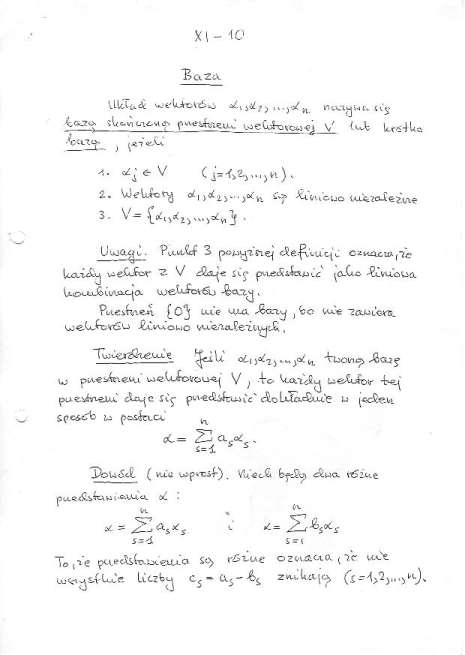 XI – 10
Baza
Układ wektorów α₁,α₂,...,αₙ nazywa się
bazą skończoną przestrzeni wektorowej V lub krótko
bazą, jeżeli
1. αⱼ ∈ V (j=1,2,...,n).
2. Wektory α₁,α₂,...,αₙ są liniowo niezależne
3. V = {α₁,α₂,...,αₙ}.
Uwagi. Punkt 3 powyższej definicji oznacza, że
każdy wektor z V daje się przedstawić jako liniowa
kombinacja wektorów bazy.
Przestrzeń {0} nie ma bazy, bo nie zawiera
wektorów liniowo niezależnych.
Twierdzenie Jeśli α₁,α₂,...,αₙ tworzą bazę
w przestrzeni wektorowej V, to każdy wektor tej
przestrzeni daje się przedstawić dokładnie w jeden
sposób w postaci
α = ∑ₛ₌₁ⁿ aₛαₛ.
Dowód (nie wprost). Niech będą dwa różne
przedstawienia α :
α = ∑ₛ₌₁ⁿ aₛαₛ i α = ∑ₛ₌₁ⁿ bₛαₛ
To, że przedstawienia są różne oznacza, że nie
wszystkie liczby cₛ = aₛ – bₛ znikają (s=1,2,...,n).